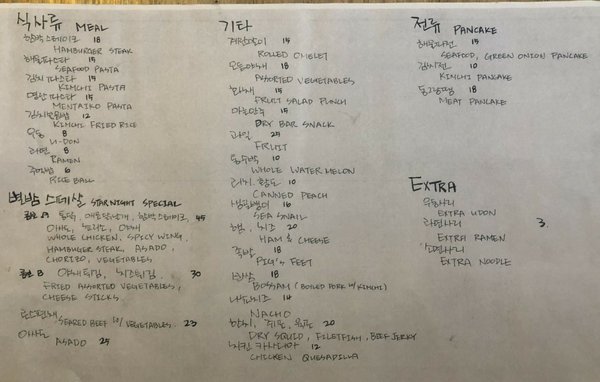 식사류 MEAL
함박스테이크 18
HAMBURGER STEAK
해물파스타 15
SEAFOOD PASTA
김치파스타 15
KIMCHI PASTA
명란파스타 15
MENTAIKO PASTA
김치볶음밥 12
KIMCHI FRIED RICE
우동 8
U-DON
라면 8
RAMEN
주먹밥 6
RICE BALL
별밤 스페샬 STARNIGHT SPECIAL
콤보 A 통닭, 매운닭날개, 함박스테이크, 45
아사도, 초리조, 야채
WHOLE CHICKEN, SPICY WING,
HAMBURGER STEAK, ASADO,
CHORIZO, VEGETABLES
콤보 B 야채튀김, 치즈튀김, 30
FRIED ASSORTED VEGETABLES,
CHEESE STICKS.
SEARED BEEF W/ VEGETABLES. 23
아사도
ASADO 25
기타
계란말이 15
ROLLED OMELET
모듬야채 18
ASSORTED VEGETABLES
화채 15
FRUIT SALAD PUNCH
마른안주 15
DRY BAR SNACK
과일 25
FRUIT
통수박 10
WHOLE WATER MELON
황도 10
CANNED PEACH
골뱅이 16
SEA SNAIL
햄, 치즈 20
HAM & CHEESE
족발 18
PIG'S FEET
보쌈 18
BOSSAM (BOILED PORK W/ KIMCHI)
나쵸치즈 14
NACHO
한치, 쥐포, 육포 20
DRY SQUID, FILEFISH, BEEF JERKY
치킨 카사디아 12
CHICKEN QUESADILLA
전류 PANCAKE
해물파전 15
SEAFOOD, GREEN ONION PANCAKE
김치전 10
KIMCHI PANCAKE
동그랑땡 18
MEAT PANCAKE
EXTRA
우동사리
EXTRA UDON
라면사리 3.
EXTRA RAMEN
소면사리
EXTRA NOODLE